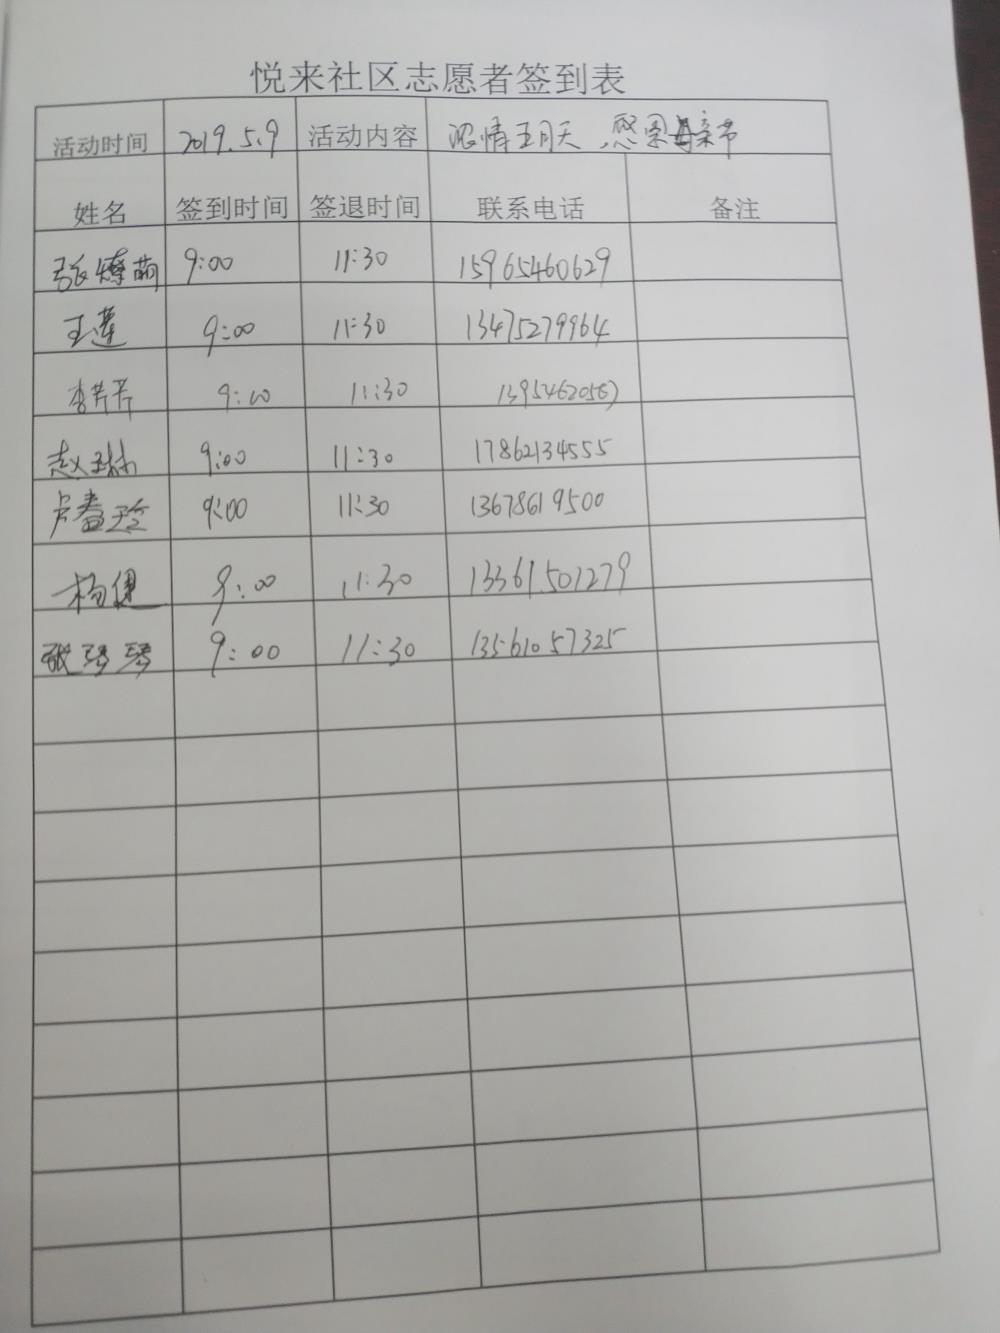 悦来社区志愿者签到表
活动时间 2019.5.9 活动内容 浓情五月天,感恩母亲节
姓名 签到时间 签退时间 联系电话 备注
张燎萌 9:00 11:30 15965460629
王莲 9:00 11:30 13475279964
李芹芹 9:00 11:30
赵琳 9:00 11:30 17862134555
卢春玲 9:00 11:30 13678619500
杨健 9:00 11:30 13361501279
张琴琴 9:00 11:30 13561057325